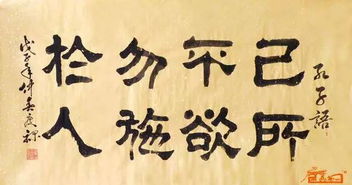 孔子語
己所
不欲
勿施
於人
戊子年仲